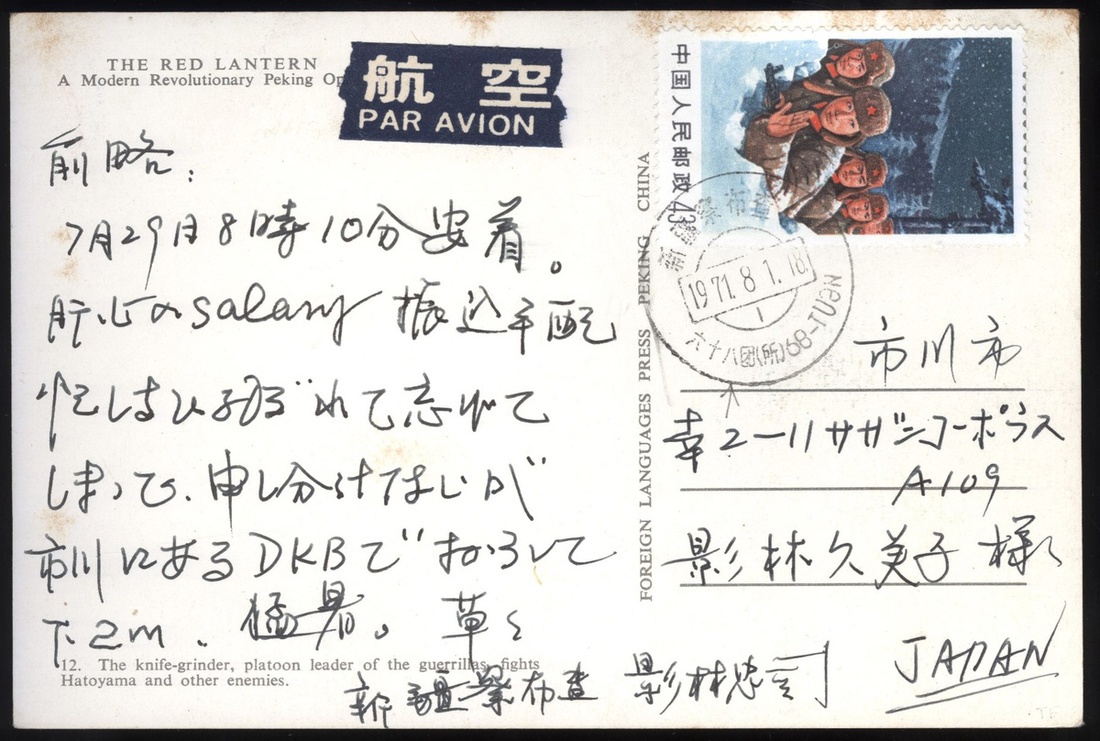 THE RED LANTERN
A Modern Revolutionary Peking Op
航空
PAR AVION
前略:
7月29日8時10分安着。
肝心のsalary振込手配
しまって、申し分けないが
市川にあるDKBで おろして
下さい。 猛暑。 草々
12. The knife-grinder, platoon leader of the guerrillas, fights
Hatoyama and other enemies.
新疆察布查 影林忠司
FOREIGN LANGUAGES PRESS PEKING CHINA
中国人民邮政
43
新疆察布查
1971.8.1.18
六十八团(所)68-TUAN
市川市
幸2-11サガシコーポラス
A109
影林久美子様
JAPAN
TF